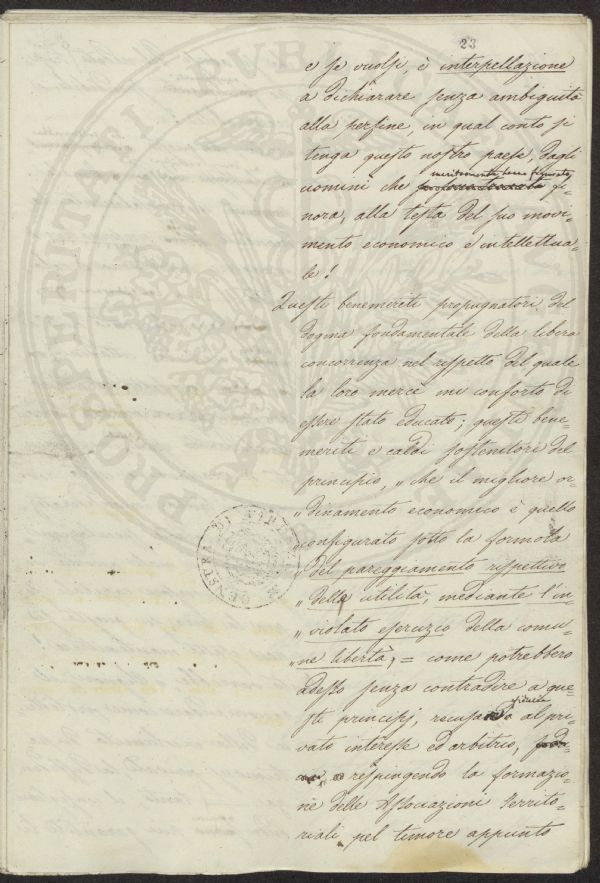 23
e se vuolsi, è interpellazione
a dichiarare senza ambiguità
alla perfine, in qual conto si
tenga questo nostro paese, dagli
meritamente bene figurato,
uomini che fi=
nora, alla testa del suo movi=
mento economico e intellettua=
le!
Questi benemeriti propugnatori del
dogma fondamentale della libera
concorrenza nel rispetto del quale
la loro mercè mi conforto di
essere stato educato; questi bene=
meriti e caldi sostenitori del
principio, „ che il migliore or=
„ dinamento economico è quello
„ configurato sotto la formola
„ del pareggiamento rispettivo
„ delle utilità, mediante l'in=
„ violato esercizio della comu=
„ ne libertà, = come potrebbero
adesso senza contradire a que=
fiducia
sti principj, al pri=
vato interesse ed arbitrio,
respingendo la formazio=
ne delle Associazioni Territo=
riali pel timore appunto
PROSPERITATI PUBLICAE